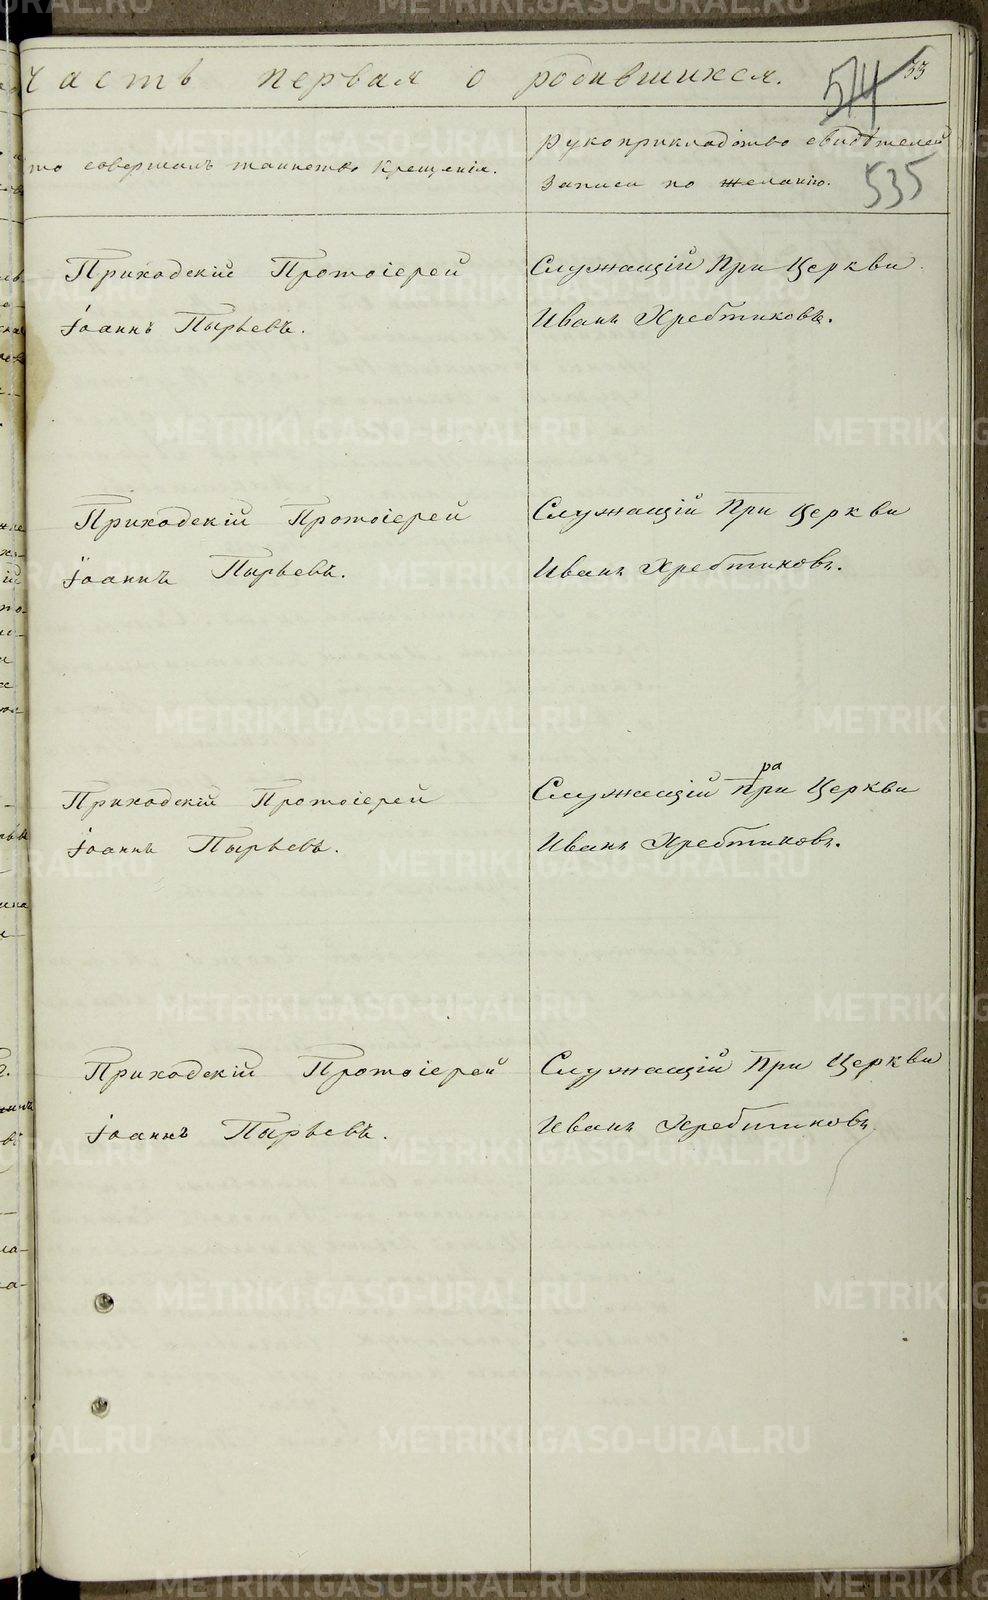 Часть первая о родившихся. 514 53
то совершалъ таинство крещенія.
Рукоприкладство свидѣтелей
записи по желанію. 535
Приходскій Протоіерей
Іоаннъ Пырьевъ.
Служащій При Церкви
Иванъ Хребтиковъ.
Приходскій Протоіерей
Іоаннъ Пырьевъ.
Служащій При Церкви
Иванъ Хребтиковъ.
Приходскій Протоіерей
Іоаннъ Пырьевъ.
ра
Служащій При Церкви
Иванъ Хребтиковъ.
Приходскій Протоіерей
Іоаннъ Пырьевъ.
Служащій При Церкви
Иванъ Хребтиковъ
METRIKI.GASO-URAL.RU